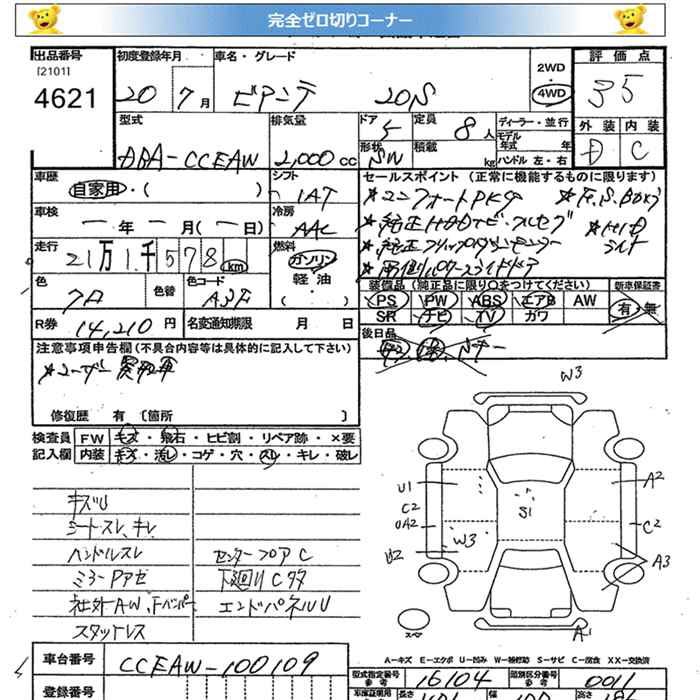 完全ゼロ切りコーナー
出品番号 初度登録年月 車名・グレード 2WD・4WD 評価点
[2101]
4621 20年7月 ビアンテ 20S 35
型式 排気量 ドア 5 定員 8人 ディーラー・並行 外装 内装
モデル年式 年 D C
ABA-CCEAW 2,000cc 形状 SW 積載 kg ハンドル 左・右
車歴 シフト セールスポイント (正常に機能するものに限ります)
自家用・( ) IAT
車検 冷房
―年―月(―日) AAC
走行 燃料
21万1千578km ガソリン・軽油・( )
色 色替 色コード 装備品(純正品に限り○をつけてください) 新車保証書
クロ A3F PS PW ABS エアB AW 有・無
SR ナビ TV カワ
R券 14,210円 名変通知期限 月 日 後日品
注意事項申告欄(不具合内容等は具体的に記入して下さい)
*ユーザー買取車
修復歴 有 [箇所 ]
検査員 FW キズ・飛石・ヒビ割・リペア跡・×要
記入欄 内装 キズ・汚レ・コゲ・穴・スレ・キレ・破レ
W3
キズU
シートスレ、キレ
ハンドルスレ センターフロアC
ミラーPアセ 下廻りCサタ
社外AW、Fバンパー エンドパネルU
スタットレス
U1 A2
C2 S1
UA2 C2
U2 W3 A3
スペア A1
A-キズ E-エクボ U-凹み W-補修跡 S-サビ C-腐食 XX-交換済
車台番号 CCEAW-100109 型式指定番号 参考 16104 類別区分番号 参考 0011
登録番号